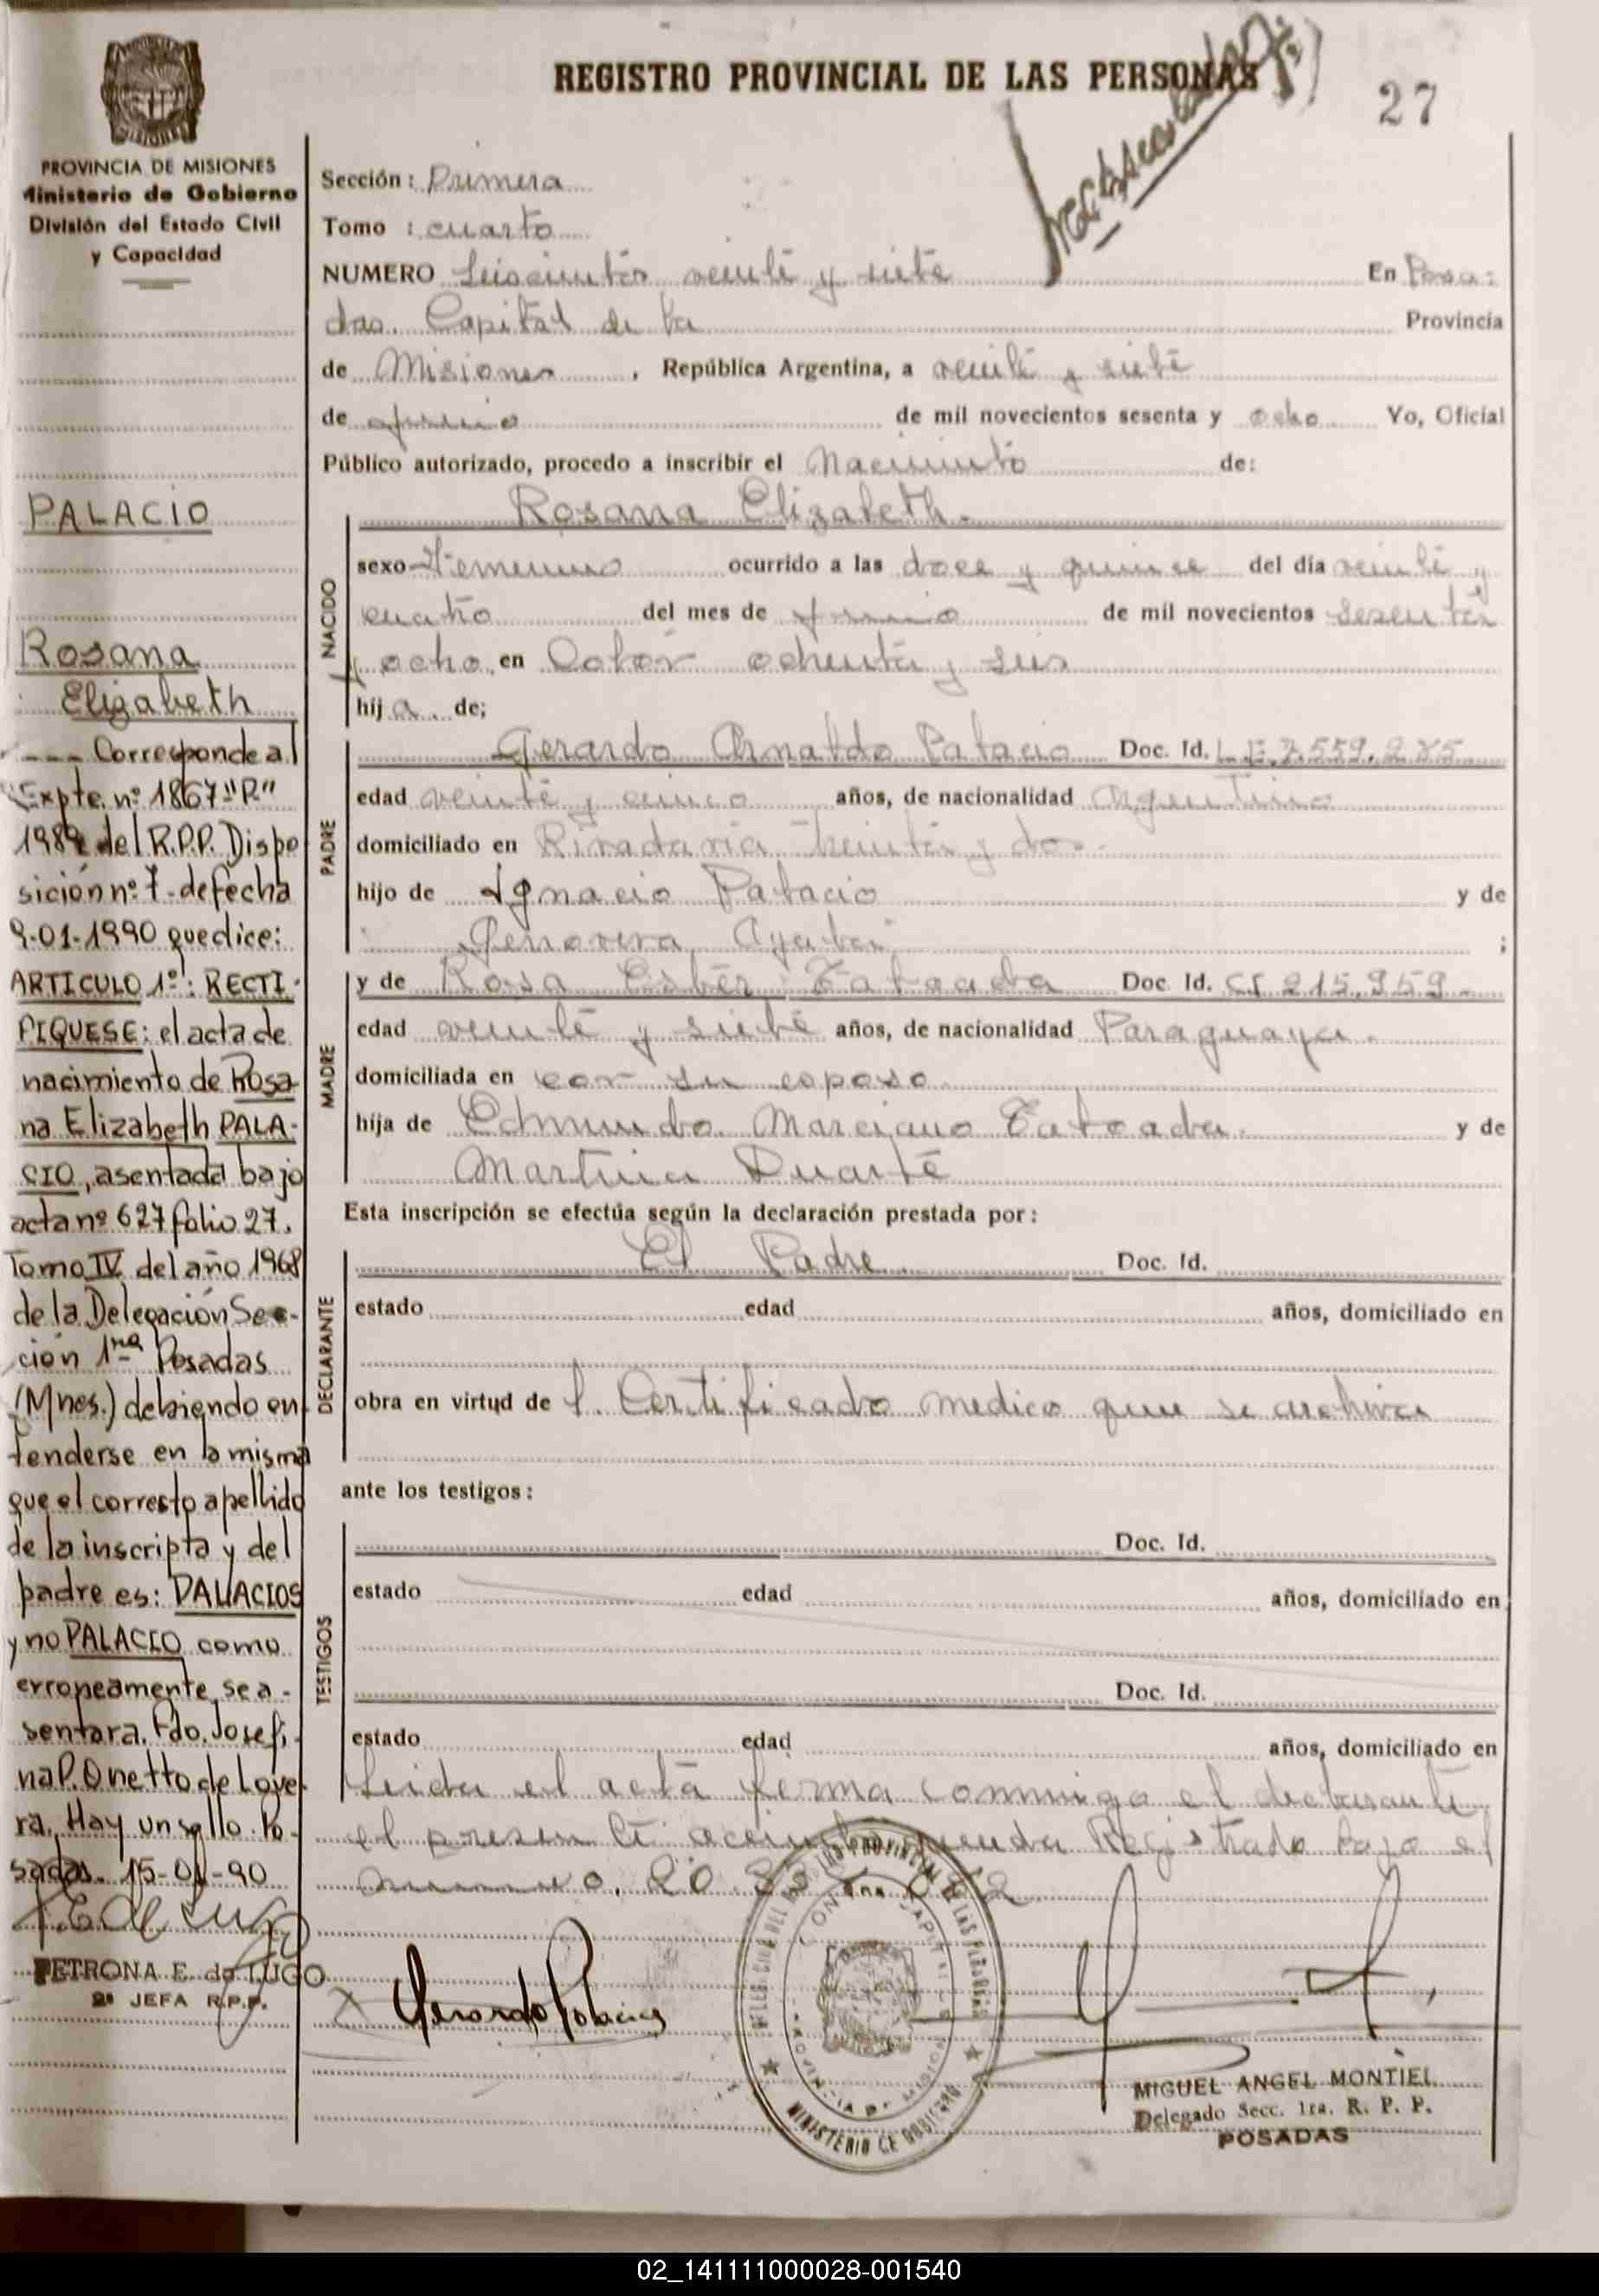 REGISTRO PROVINCIAL DE LAS PERSONAS
27
PROVINCIA DE MISIONES
Ministerio de Gobierno
División del Estado Civil
y Capacidad
PALACIO
Rosana
Elizabeth
--- Corresponde al
Expte. nº 1867 "R"
1989 del R.P.P. Dispo
sición nº 7. de fecha
9-01-1990 que dice:
ARTICULO 1º: RECTI-
FIQUESE: el acta de
nacimiento de Rosa
na Elizabeth PALA-
CIO, asentada bajo
acta nº 627 folio 27.
Tomo IV del año 1968
de la Delegación Sec-
ción 1ra Posadas
(Mnes.) debiendo en
tenderse en la misma
que el correcto apellido
de la inscripta y del
padre es: PALACIOS
y no PALACIO como
erroneamente se a-
sentara. Fdo. Josefi-
na P. Onetto de Love
ra. Hay un sello. Po-
sadas. 15-01-90
PETRONA E. de LUGO
2ª JEFA R.P.P.
Sección: Primera
Tomo : cuarto
NUMERO Seiscientos veinte y siete En Posa-
das. Capital de la Provincia
de Misiones, República Argentina, a veinte y siete
de junio de mil novecientos sesenta y ocho Yo, Oficial
Público autorizado, procedo a inscribir el Nacimiento de:
Rosana Elizabeth.
NACIDO
sexo Femenino ocurrido a las doce y quince del día veinte y
cuatro del mes de junio de mil novecientos sesenta
y ocho en Colón ochenta y seis
hija de;
PADRE
Gerardo Arnaldo Palacio Doc. Id. L.E. 7.559.285
edad veinte y cinco años, de nacionalidad Argentino
domiciliado en Rivadavia treinta y dos.
hijo de Ignacio Palacio y de
Genoveva Ayala ;
MADRE
y de Rosa Ester Taboada Doc Id. CI 215.959-
edad veinte y siete años, de nacionalidad Paraguaya.
domiciliada en con su esposo
hija de Edmundo Marciano Taboada. y de
Martina Duarte
Esta inscripción se efectúa según la declaración prestada por:
DECLARANTE
El Padre Doc. Id.
estado edad años, domiciliado en
obra en virtud de l. Certificado medico que se archiva
ante los testigos:
TESTIGOS
Doc. Id.
estado edad años, domiciliado en
Doc. Id.
estado edad años, domiciliado en
Leida el acta firma conmigo el declarante
el presente queda Registrado bajo el
numero. 20
Gerardo Palacios
MINISTERIO DE GOBIERNO
MIGUEL ANGEL MONTIEL
Delegado Secc. 1ra. R. P. P.
POSADAS
02_141111000028-001540